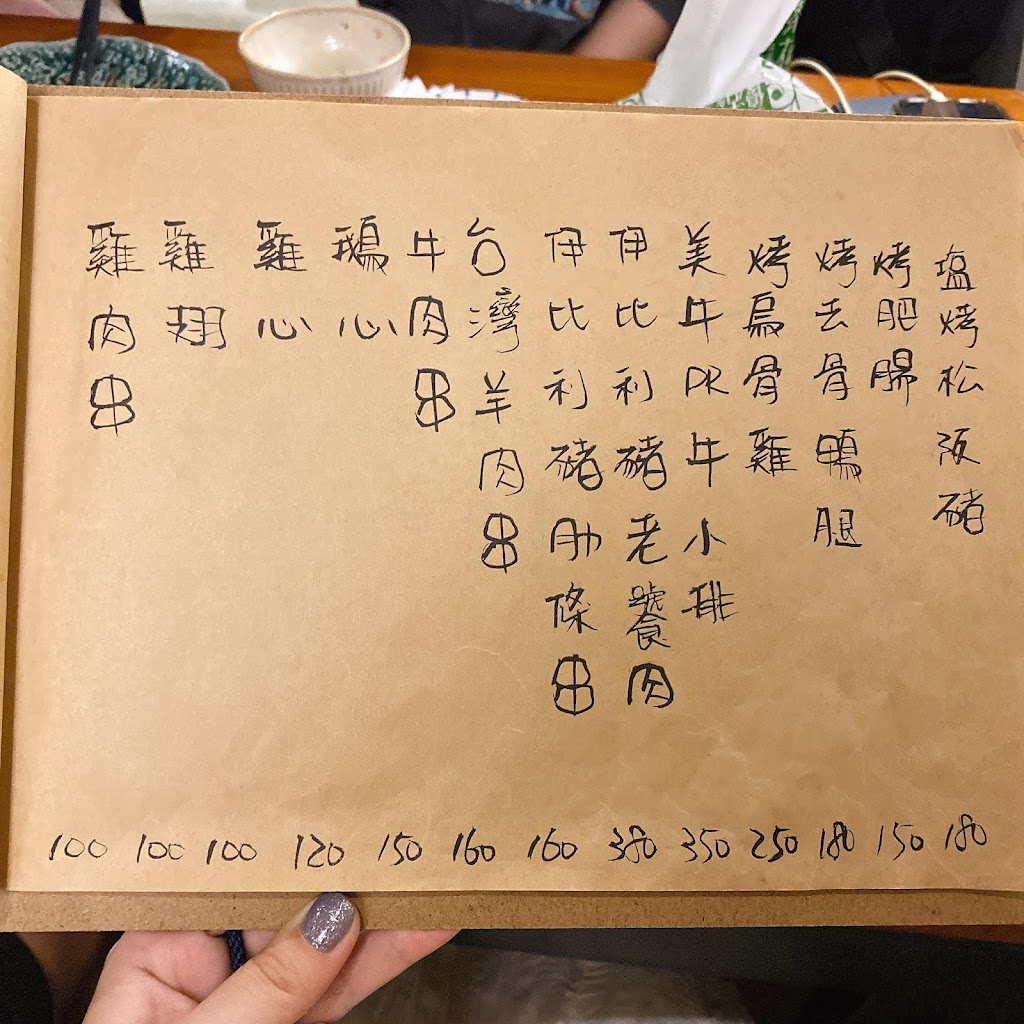 塩烤松阪豬 180
烤肥腸 150
烤去骨鴨腿 180
烤烏骨雞 250
美牛PR牛小排 350
伊比利豬老饕肉 380
伊比利豬肋條串 160
台灣羊肉串 160
牛肉串 150
鵝心 120
雞心 100
雞翅 100
雞肉串 100